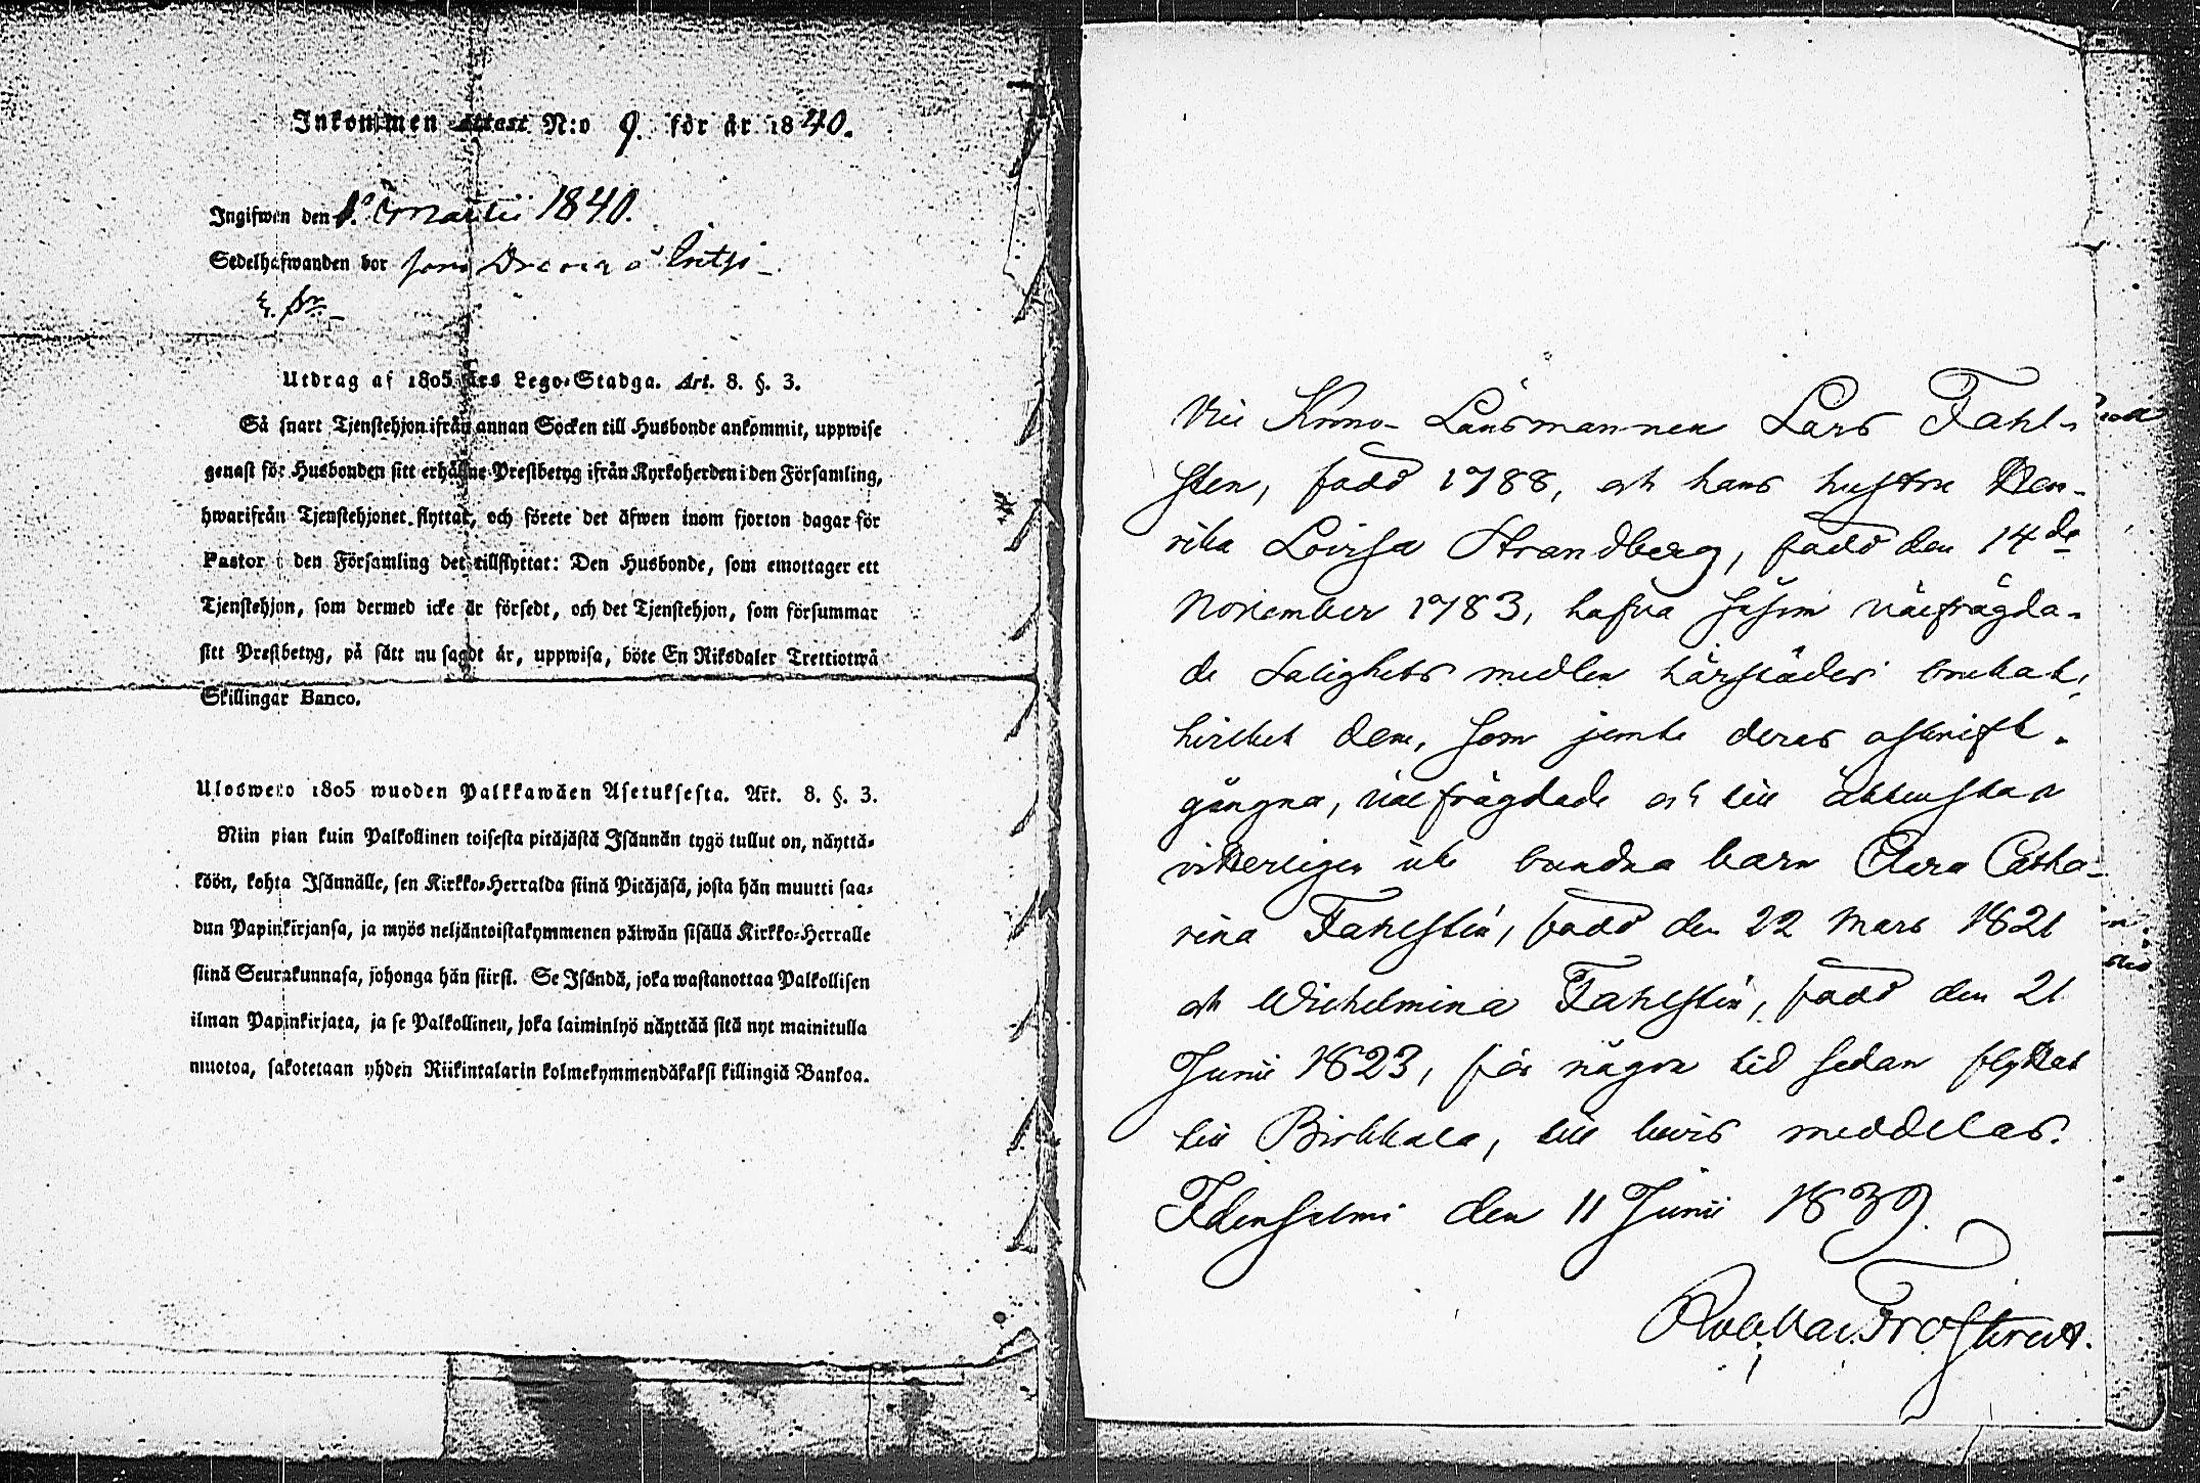 Inkommen attest N:o 9. för år 1840.
Ingifwen den 1. Martii 1840.
Sedelhafwanden bor
Utdrag af 1805 års Lego-Stadga. Art. 8. §. 3.
Så snart Tjenstehjon ifrån annan Socken till Husbonde ankommit, uppwise
genast för Husbonden sitt erhållne Prestbetyg ifrån Kyrkoherden i den Församling,
hwarifrån Tjenstehjonet flyttat, och förete det äfwen inom fjorton dagar för
Pastor i den Församling det tillflyttat: Den Husbonde, som emottager ett
Tjenstehjon, som dermed icke är försedt, och det Tjenstehjon, som försummar
sitt Prestbetyg, på sätt nu sagdt är, uppwisa, böte En Riksdaler Trettiotwå
Skillingar Banco.
Ulosweto 1805 wuoden Palkkawäen Asetuksesta. Art. 8. §. 3.
Niin pian kuin Palkollinen toisesta pitäjästä Isännän tygö tullut on, näyttä-
köön, kohta Isännälle, sen Kirkko-Herralda siinä Pitäjäsä, josta hän muutti saa-
dun Papinkirjansa, ja myös neljäntoistakymmenen päiwän sisällä Kirkko-Herralle
siinä Seurakunnasa, johonga hän siirsi. Se Isändä, joka wastanottaa Palkollisen
ilman Papinkirjata, ja se Palkollinen, joka laiminlyö näyttää sitä nyt mainitulla
muotoa, sakotetaan yhden Riikintalarin kolmekymmendäkaksi killingiä Bankoa.
Vice Krono-Länsmannen Lars Fahl-
sten, född 1788, och hans hustru Hen-
rika Lovisa Strandberg, född den 14de
November 1783, hafva såsom välfrägda-
de Salighets medlen härstädes brukat;
hvilket dem, som jemte deras
gångna, välfrägdade och till äktenskap
vitterligen icke bundna barn Clara Catha-
rina Fahlstén, född den 22 Mars 1821
och Wilhelmina Fahlstén, född den 21
Junii 1823, för någon tid sedan flyttat
till Birkkala, till bevis meddelas.
Idensalmi den 11 Junii 1839.